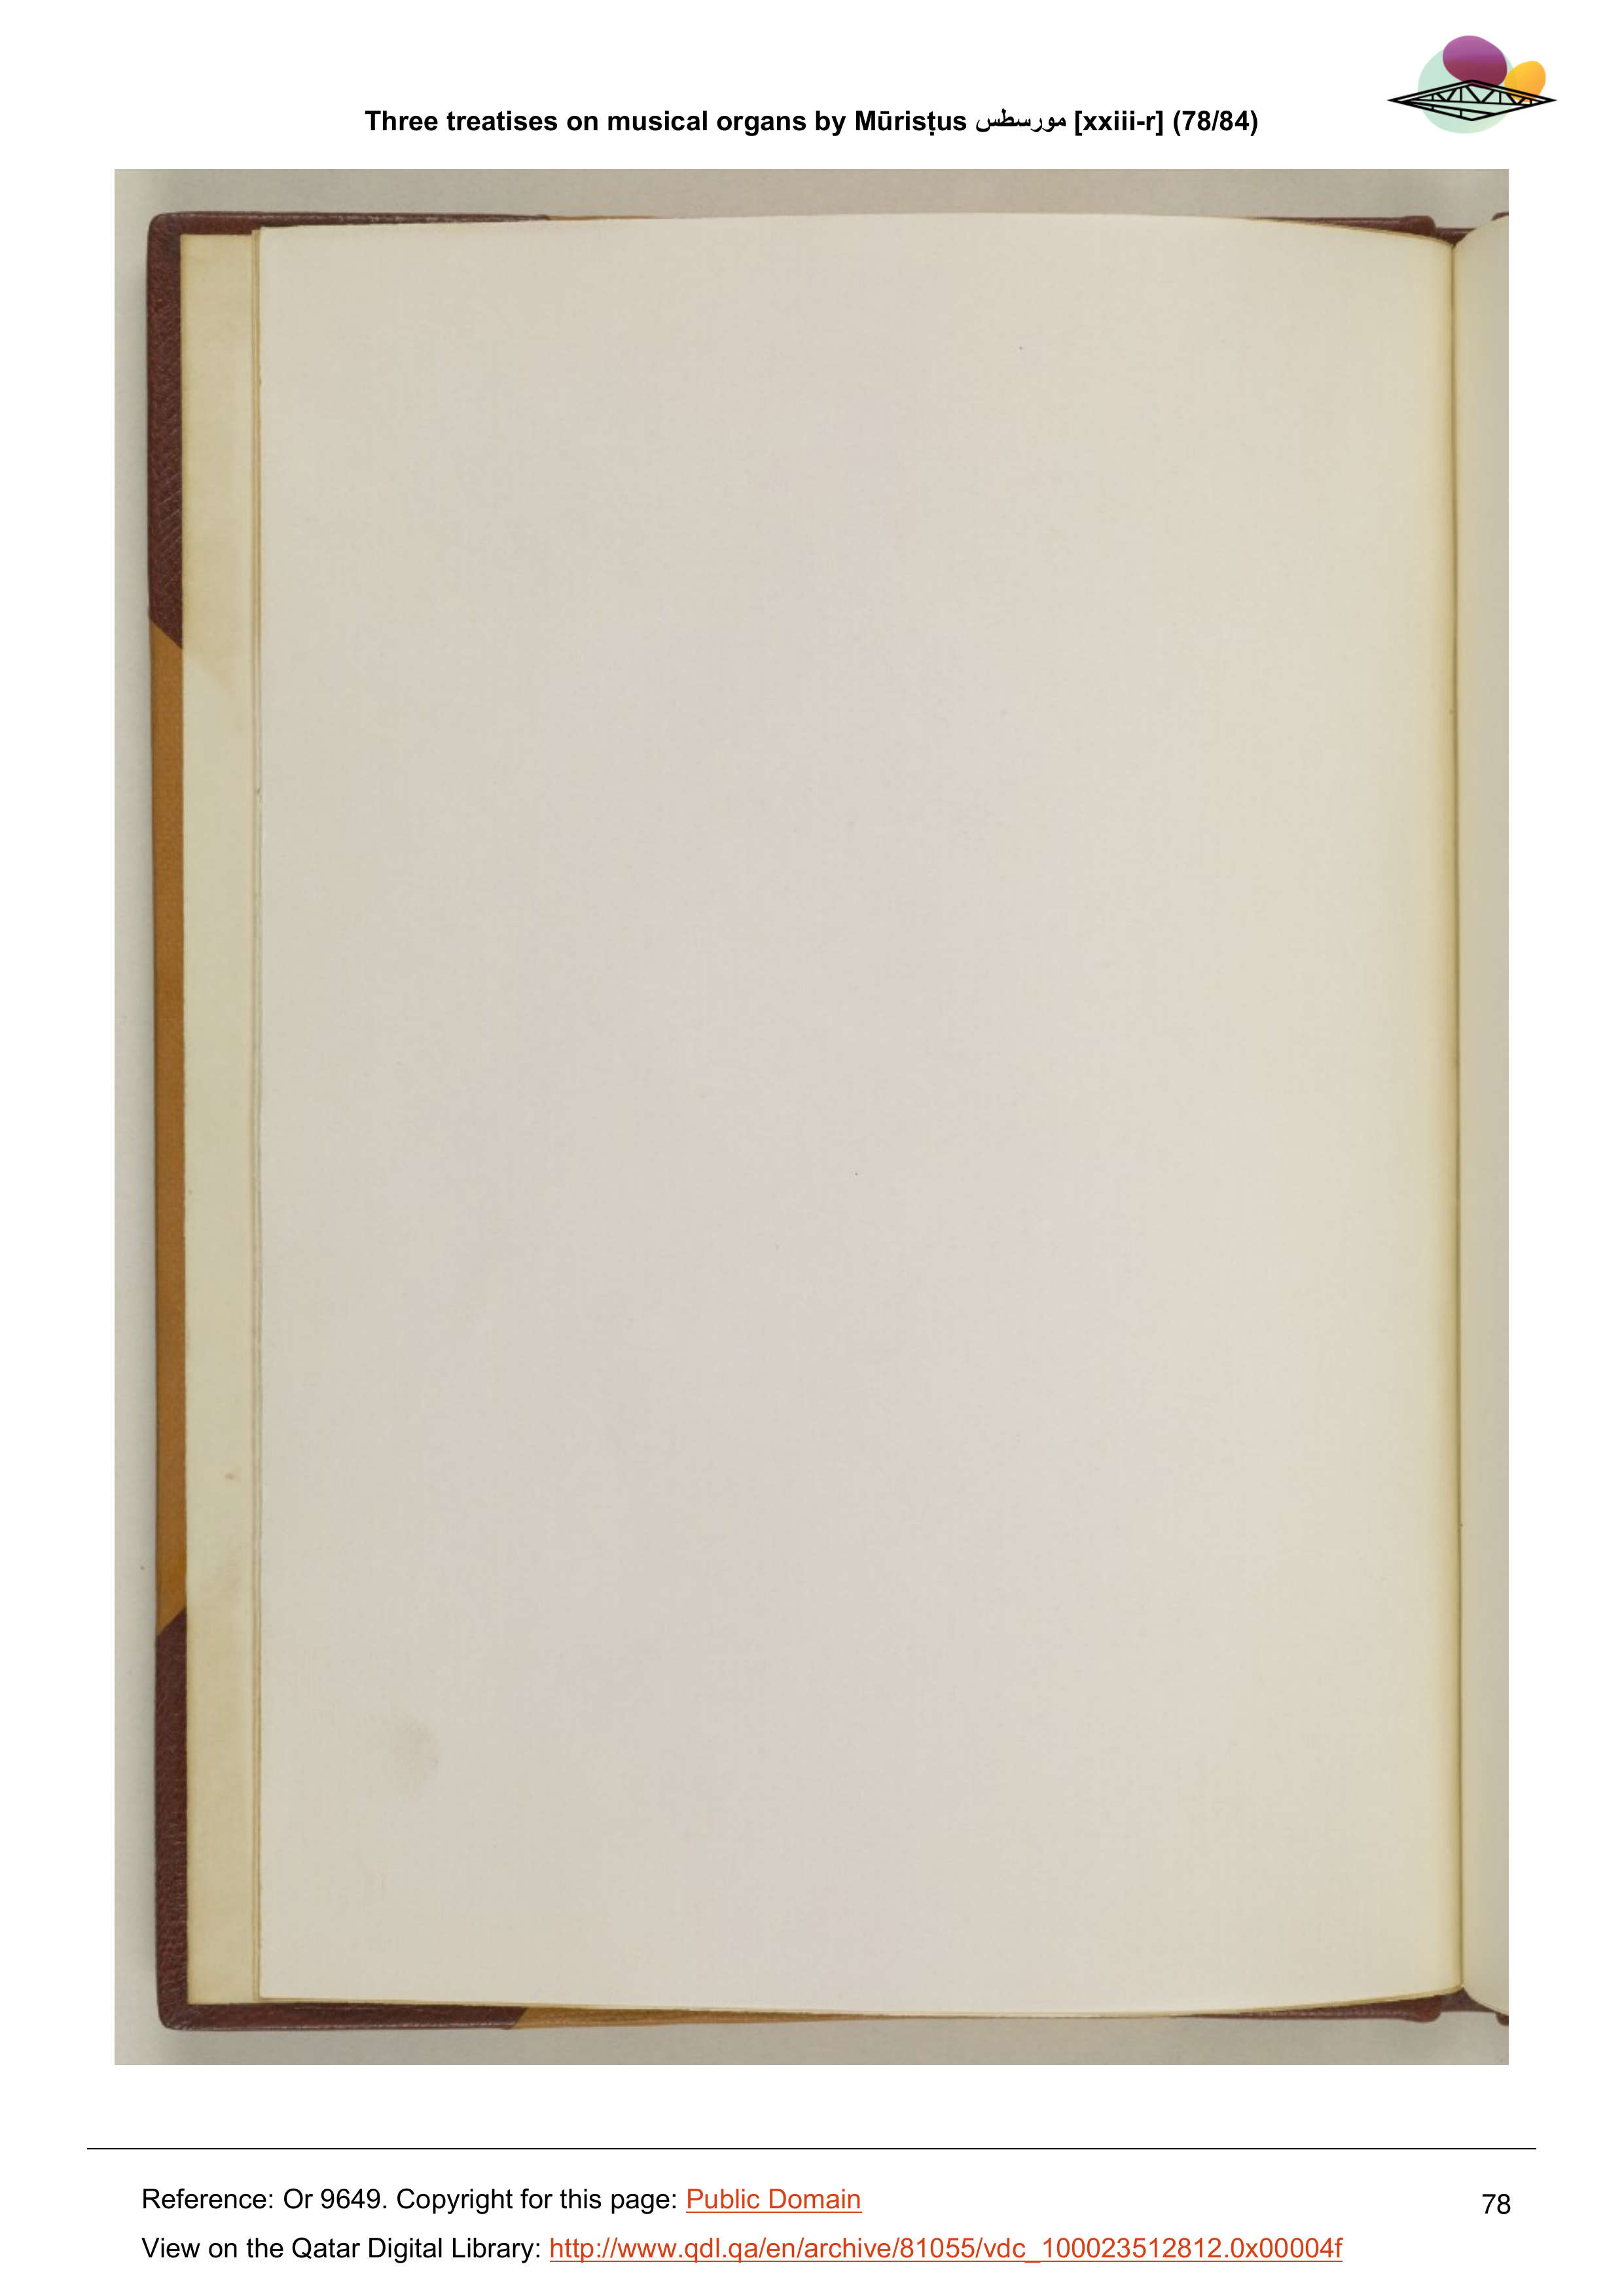 Three treatises on musical organs by Mūrisṭus مورسطس [xxiii-r] (78/84)
Reference: Or 9649. Copyright for this page: Public Domain
78
View on the Qatar Digital Library: http://www.qdl.qa/en/archive/81055/vdc_100023512812.0x00004f